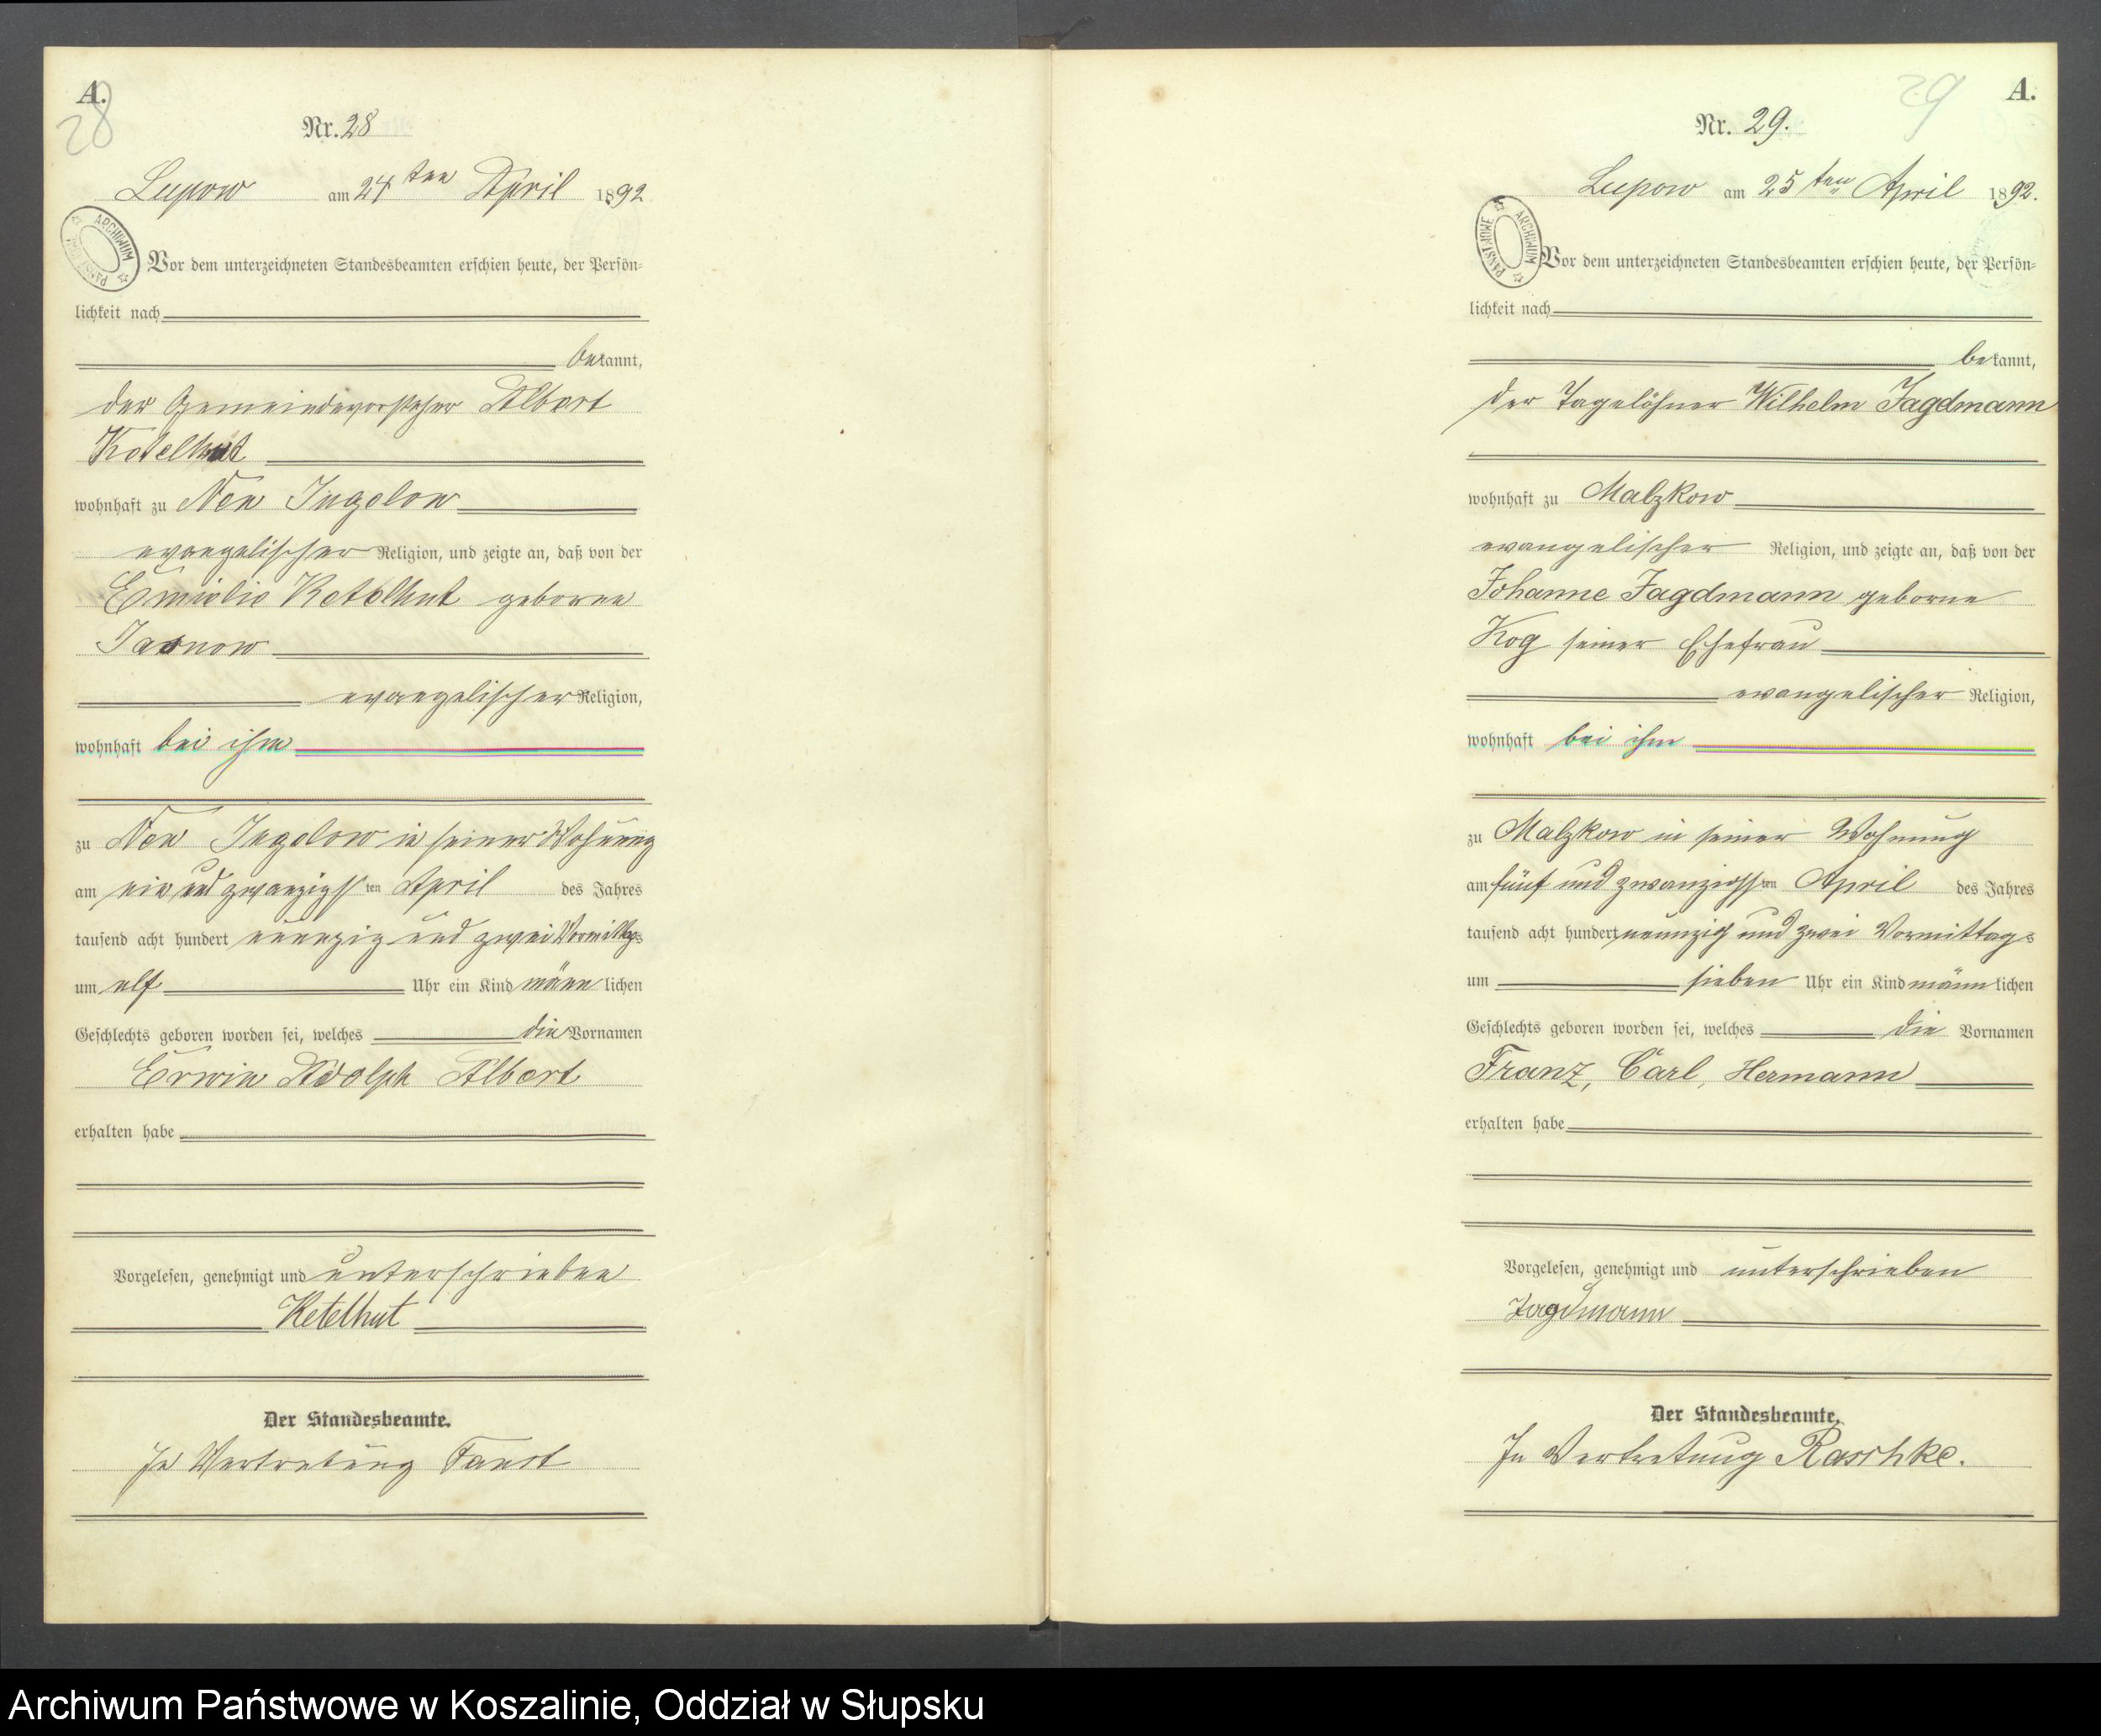 A.
28
Nr. 28
Lupow am 24 ten April 1892
ARCHIWUM PAŃSTWOWE
Vor dem unterzeichneten Standesbeamten erschien heute, der Persön-
lichkeit nach
bekannt,
der Gemeindevorsteher Albert
Ketelhut
wohnhaft zu Neu Jugelow
evangelischer Religion, und zeigte an, daß von der
Emielie Ketelhut geborne
wohnhaft bei ihm
evangelischer Religion,
zu Neu Jugelow in seiner Wohnung
am ein und zwanzigsten April des Jahres
tausend acht hundert neunzig und zwei Vormittags
um elf Uhr ein Kind männlichen
Geschlechts geboren worden sei, welches die Vornamen
Erwin Adolph Albert
erhalten habe
Vorgelesen, genehmigt und unterschrieben
Ketelhut
Der Standesbeamte.
In Vertretung Faust
29
A.
Nr. 29.
Lupow am 25 ten April 1892.
ARCHIWUM PAŃSTWOWE
Vor dem unterzeichneten Standesbeamten erschien heute, der Persön-
lichkeit nach
bekannt,
der Tagelöhner Wilhelm Jagdmann
wohnhaft zu Malzkow
evangelischer Religion, und zeigte an, daß von der
Johanne Jagdmann geborne
Kog seiner Ehefrau
evangelischer Religion,
wohnhaft bei ihm
zu Malzkow in seiner Wohnung
am fünf und zwanzigsten April des Jahres
tausend acht hundert neunzig und zwei Vormittags
um sieben Uhr ein Kind männlichen
Geschlechts geboren worden sei, welches die Vornamen
Franz, Carl, Hermann
erhalten habe
Vorgelesen, genehmigt und unterschrieben
Jagdmann
Der Standesbeamte.
In Vertretung Raschke.
Archiwum Państwowe w Koszalinie, Oddział w Słupsku